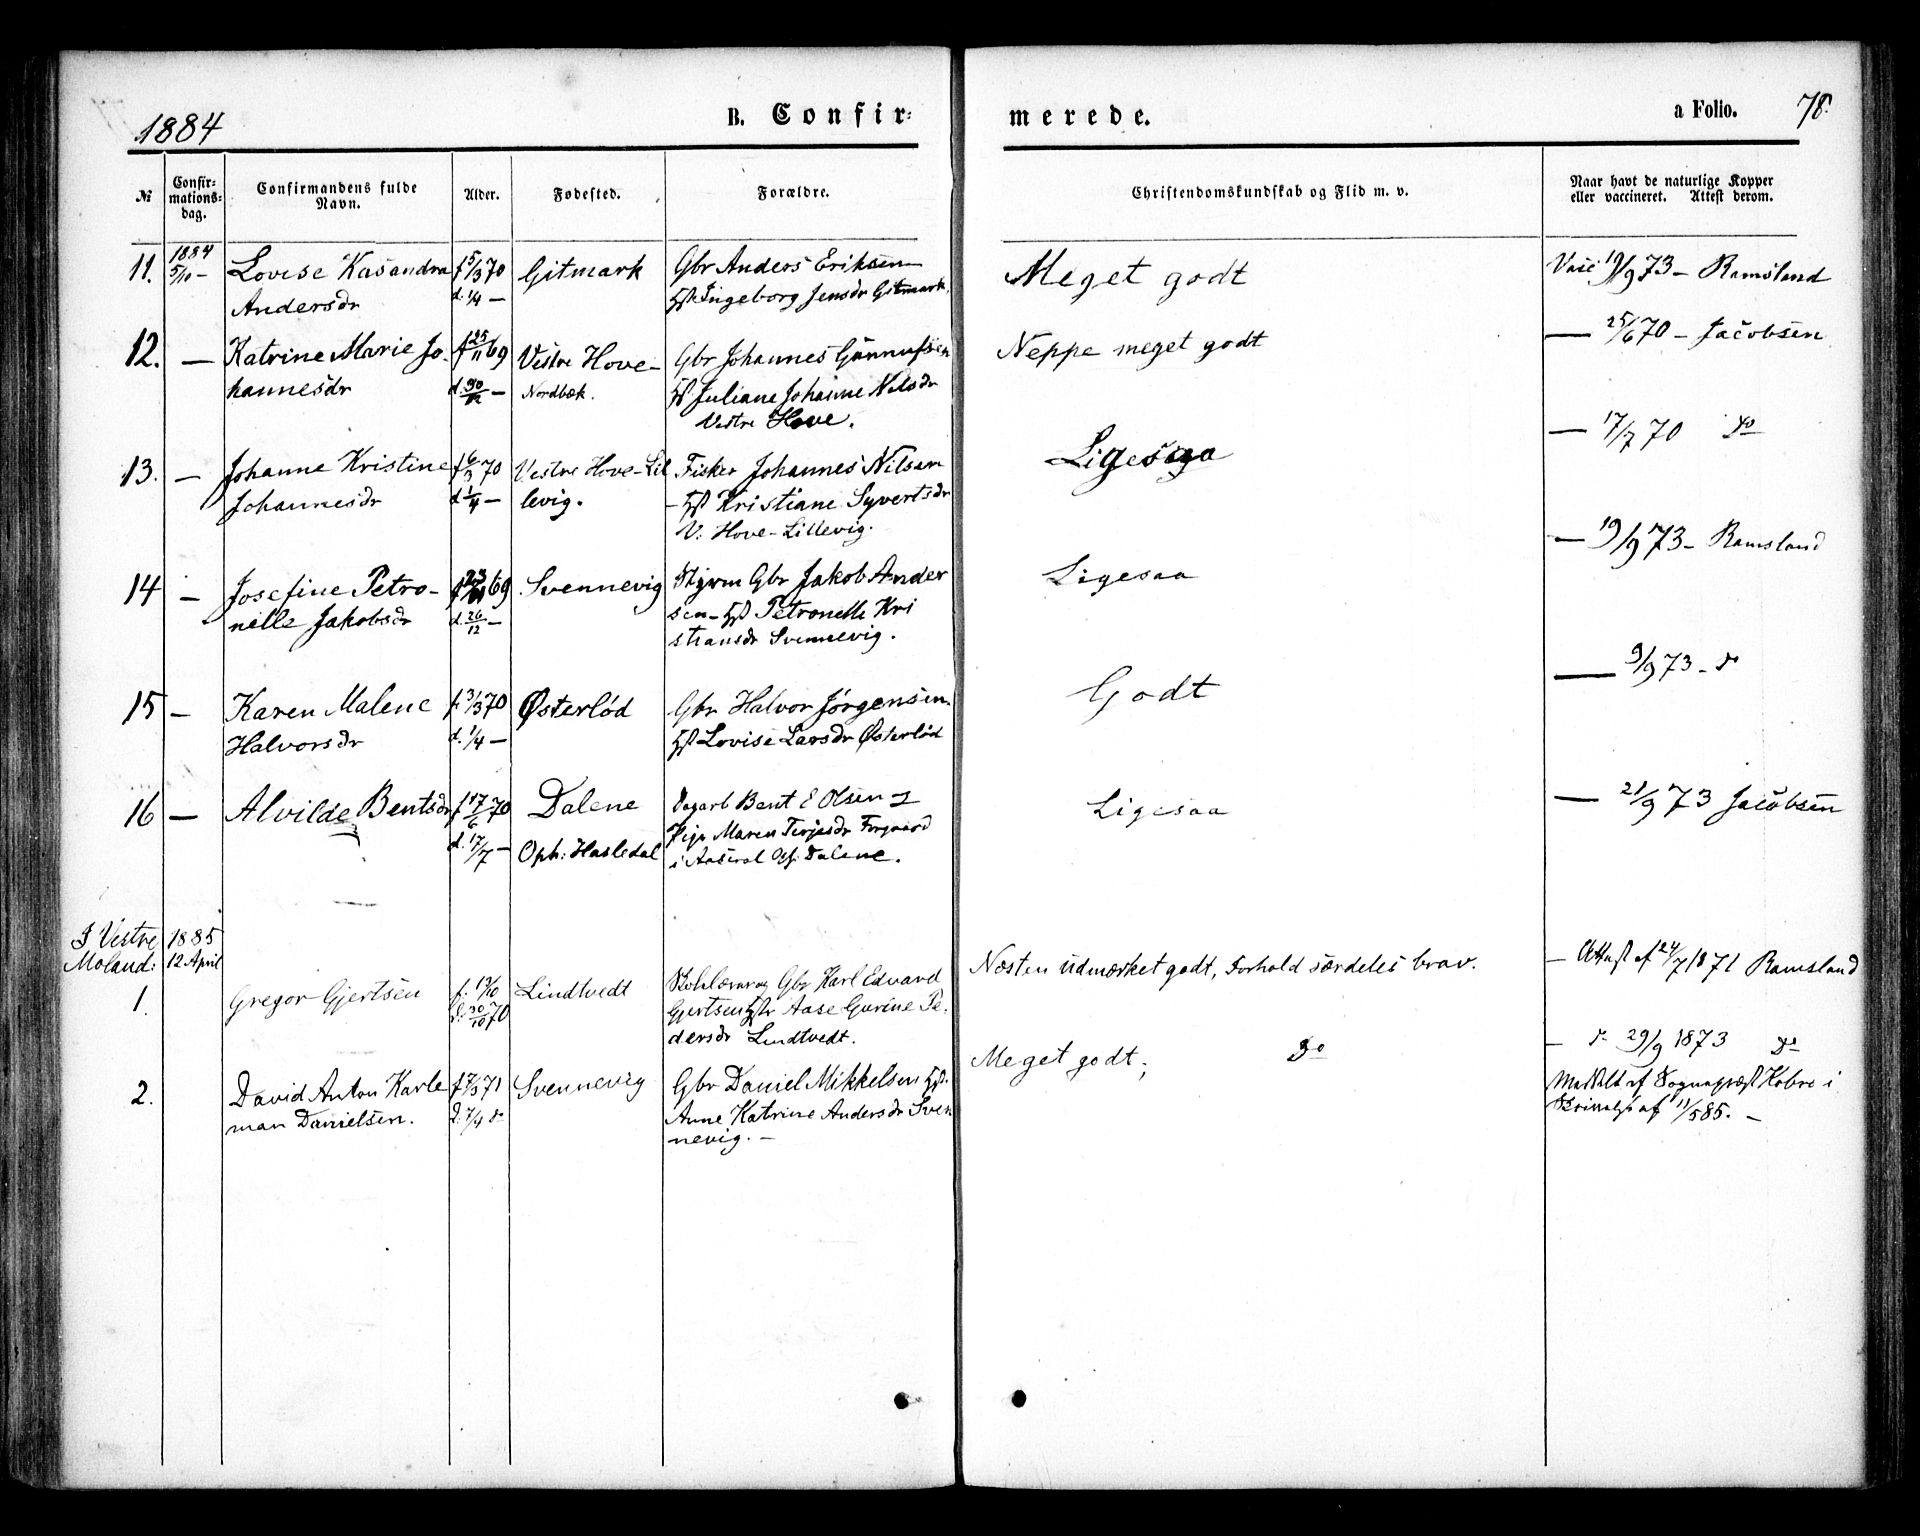 1884 B. Confirmerede. a Folio. 78.
№ Confirmationsdag. Confirmandens fulde Navn. Alder. Fødested. Forældre. Christendomskundskab og Flid m. v. Naar havt de naturlige Kopper eller vaccineret. Attest derom.
11. 1884 5/10 – Lovise Kasandra f 5/3 70 Gitmark Gbr Anders Eriksen Meget godt Vasc 19/9 73 – Ramsland
Andersdr d. 1/4 – Hst Ingeborg Jensdr Gitmark.
12. – Katrine Marie Jo- f 25/11 69 Vestre Hove – Gbr Johannes Gunnufsen Neppe meget godt – 25/6 70 – Jacobsen
hannesdr d 30/12 – Nordbæk. Hst Juliane Johanne Nilsdr
Vestre Hove.
13. – Johanne Kristine f 6/3 70 Vestre Hove – Lil Fisker Johannes Nilsen Ligesaa – 17/7 70 do
Johannesdr d 1/4 – levig. – Hst Kristiane Syvertsdr
V. Hove – Lillevig.
14 – Josefine Petro- 69 Svennevig Styrm Gbr Jakob Ander Ligesaa – 19/9 73 – Ramsland
nille Jakobsdr d. 26/12 – sen – Hst Petronelle Kri
stiansdr Svennevig.
15 – Karen Malene f. 3/3 70 Østerlød Gbr Halvor Jørgensen Godt – 9/9 73 – do
Halvorsdr d. 1/4 – Hst Lovise Larsdr Østerlød
16 – Alvilde Bentsdr f 17/6 70 Dalene Dagarb Bent E Olsen Ligesaa – 21/9 73 Jacobsen
d. 17/7 – Oph: Hasledal Pige Maren Terjesdr
i Aaseral Dalene.
I Vestre 1885
Moland: 12 April
1. Gregor Gjertsen f. 13/10 Lindtvedt Gbr Karl Edvard Næsten udmærket godt, Forhold særdeles brav. – Attest af 24/7 1871 Ramsland
d. 30/10 70 Gjertsen Hstr Aase Gurine Pe-
dersdr Lindtvedt.
2. David Anton Karle f 7/3 71 Svennevig Gbr Daniel Mikkelsen Hst. Meget godt; do – do 29/9 1873 do
man Danielsen. d. 7/4 do Anne Katrine Andersdr Sven
nevig. –
Meddelt af Sognepræst Kobro i
af 11/5 85. –